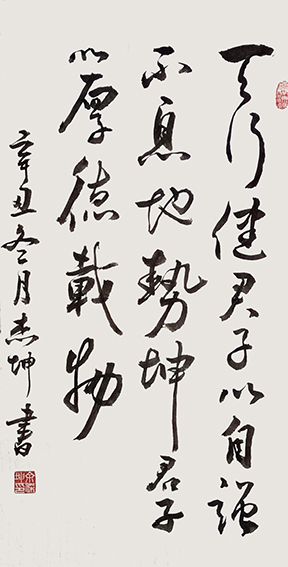 天行健君子以自強
不息地勢坤君子
以厚德載物
辛丑冬月志坤書